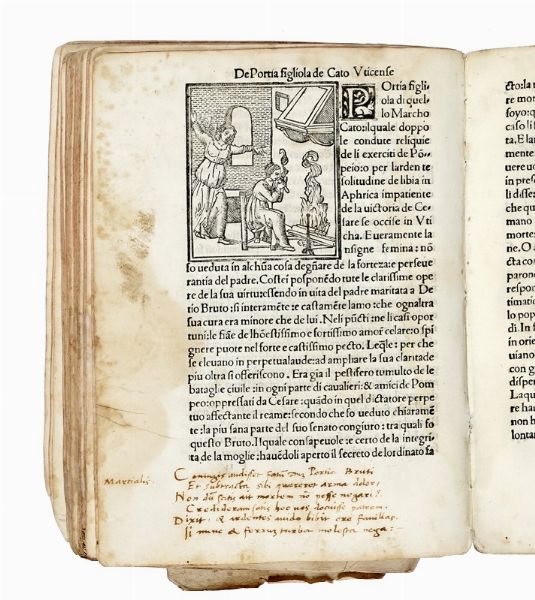 De Portia figliola de Cato Vticense
POrtia figli-
ola di quel-
lo Marcho
Cato: ilquale doppo
le condute reliquie
de li exerciti de Põ-
peio: o per larden te
solitudine de libia in
Aphrica impatiente
de la uictoria de Ce-
sare se occise in Vti
cha. Eueramente la
nsigne femina: nõ
fo ueduta in alchũa cosa degñare de la forteza: e perseue
rantia del padre. Costei posponẽdo tute le clarissime ope
re de la sua uirtu: essendo in uita del padre maritata a De
tio Bruto: si interamẽte: e castamẽte lamo: che ognaltra
sua cura era minore che de lui. Neli pũcti: ne li casi opor
tuni: le fiãe de lhõestissimo e fortissimo amor celare: o spi
gnere puote nel forte e castissimo pecto. Leq̃le: per che
se eleuano in perpetua laude: ad ampliare la sua claritade
piu oltra si offeriscono. Era gia il pestifero tumulto de le
bataglie ciuile: in ogni parte di caualieri: & amici de Pom
peo: oppressati da Cesare: quãdo in quel dictatore perpe
tuo affectante il reame: secondo che fo ueduto chiaramẽ
te: la piu sana parte del suo senato congiuro: tra quali fo
questo Bruto. Il quale consapeuole: e certo de la integri
ta de la moglie: hauẽdoli aperto il secreto de lordinato fa
Martialis. Coniugis audisset fatũ dum Portia Bruti
Et subtracta sibi quereret arma dolor:
Non dũ scitis ait mortem nõ posse negari?
Credideram satis hoc uos docuisse patrem.
Dixit: & ardentes auido bibit ore fauillas.
I nunc & ferrũ turba molesta nega: